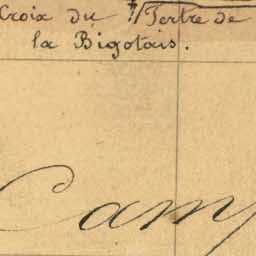 Croix du Tertre de
la Bigotais.
Camp